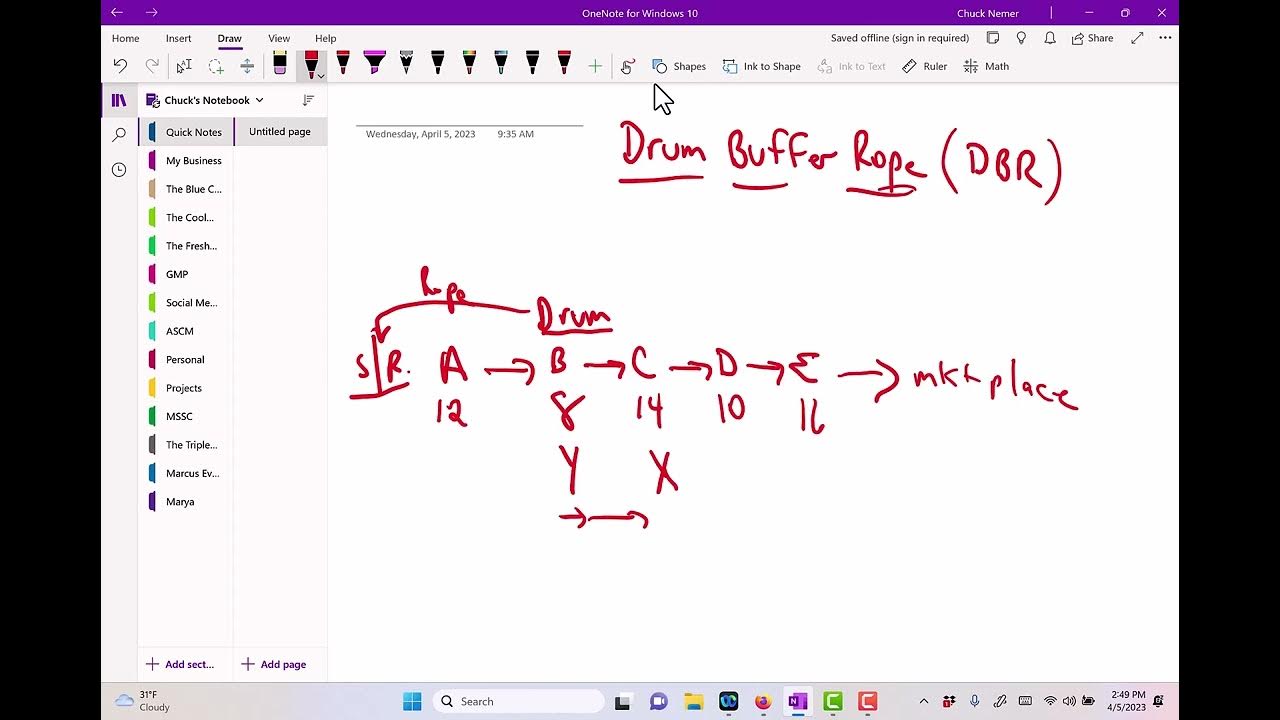 OneNote for Windows 10
Chuck Nemer
Home Insert Draw View Help
Saved offline (sign in required)
Share
Shapes
Ink to Shape
Ink to Text
Ruler
Math
Chuck's Notebook
Quick Notes
My Business
The Blue C...
The Cool...
The Fresh...
GMP
Social Me...
ASCM
Personal
Projects
MSSC
The Triple...
Marcus Ev...
Marya
Add sect...
Untitled page
Add page
Wednesday, April 5, 2023 9:35 AM
Drum Buffer Rope (DBR)
Rope
Drum
S R. A B C D E mktplace
12 8 14 10 16
Y X
31°F
Cloudy
Search
2:49 PM
4/5/2023